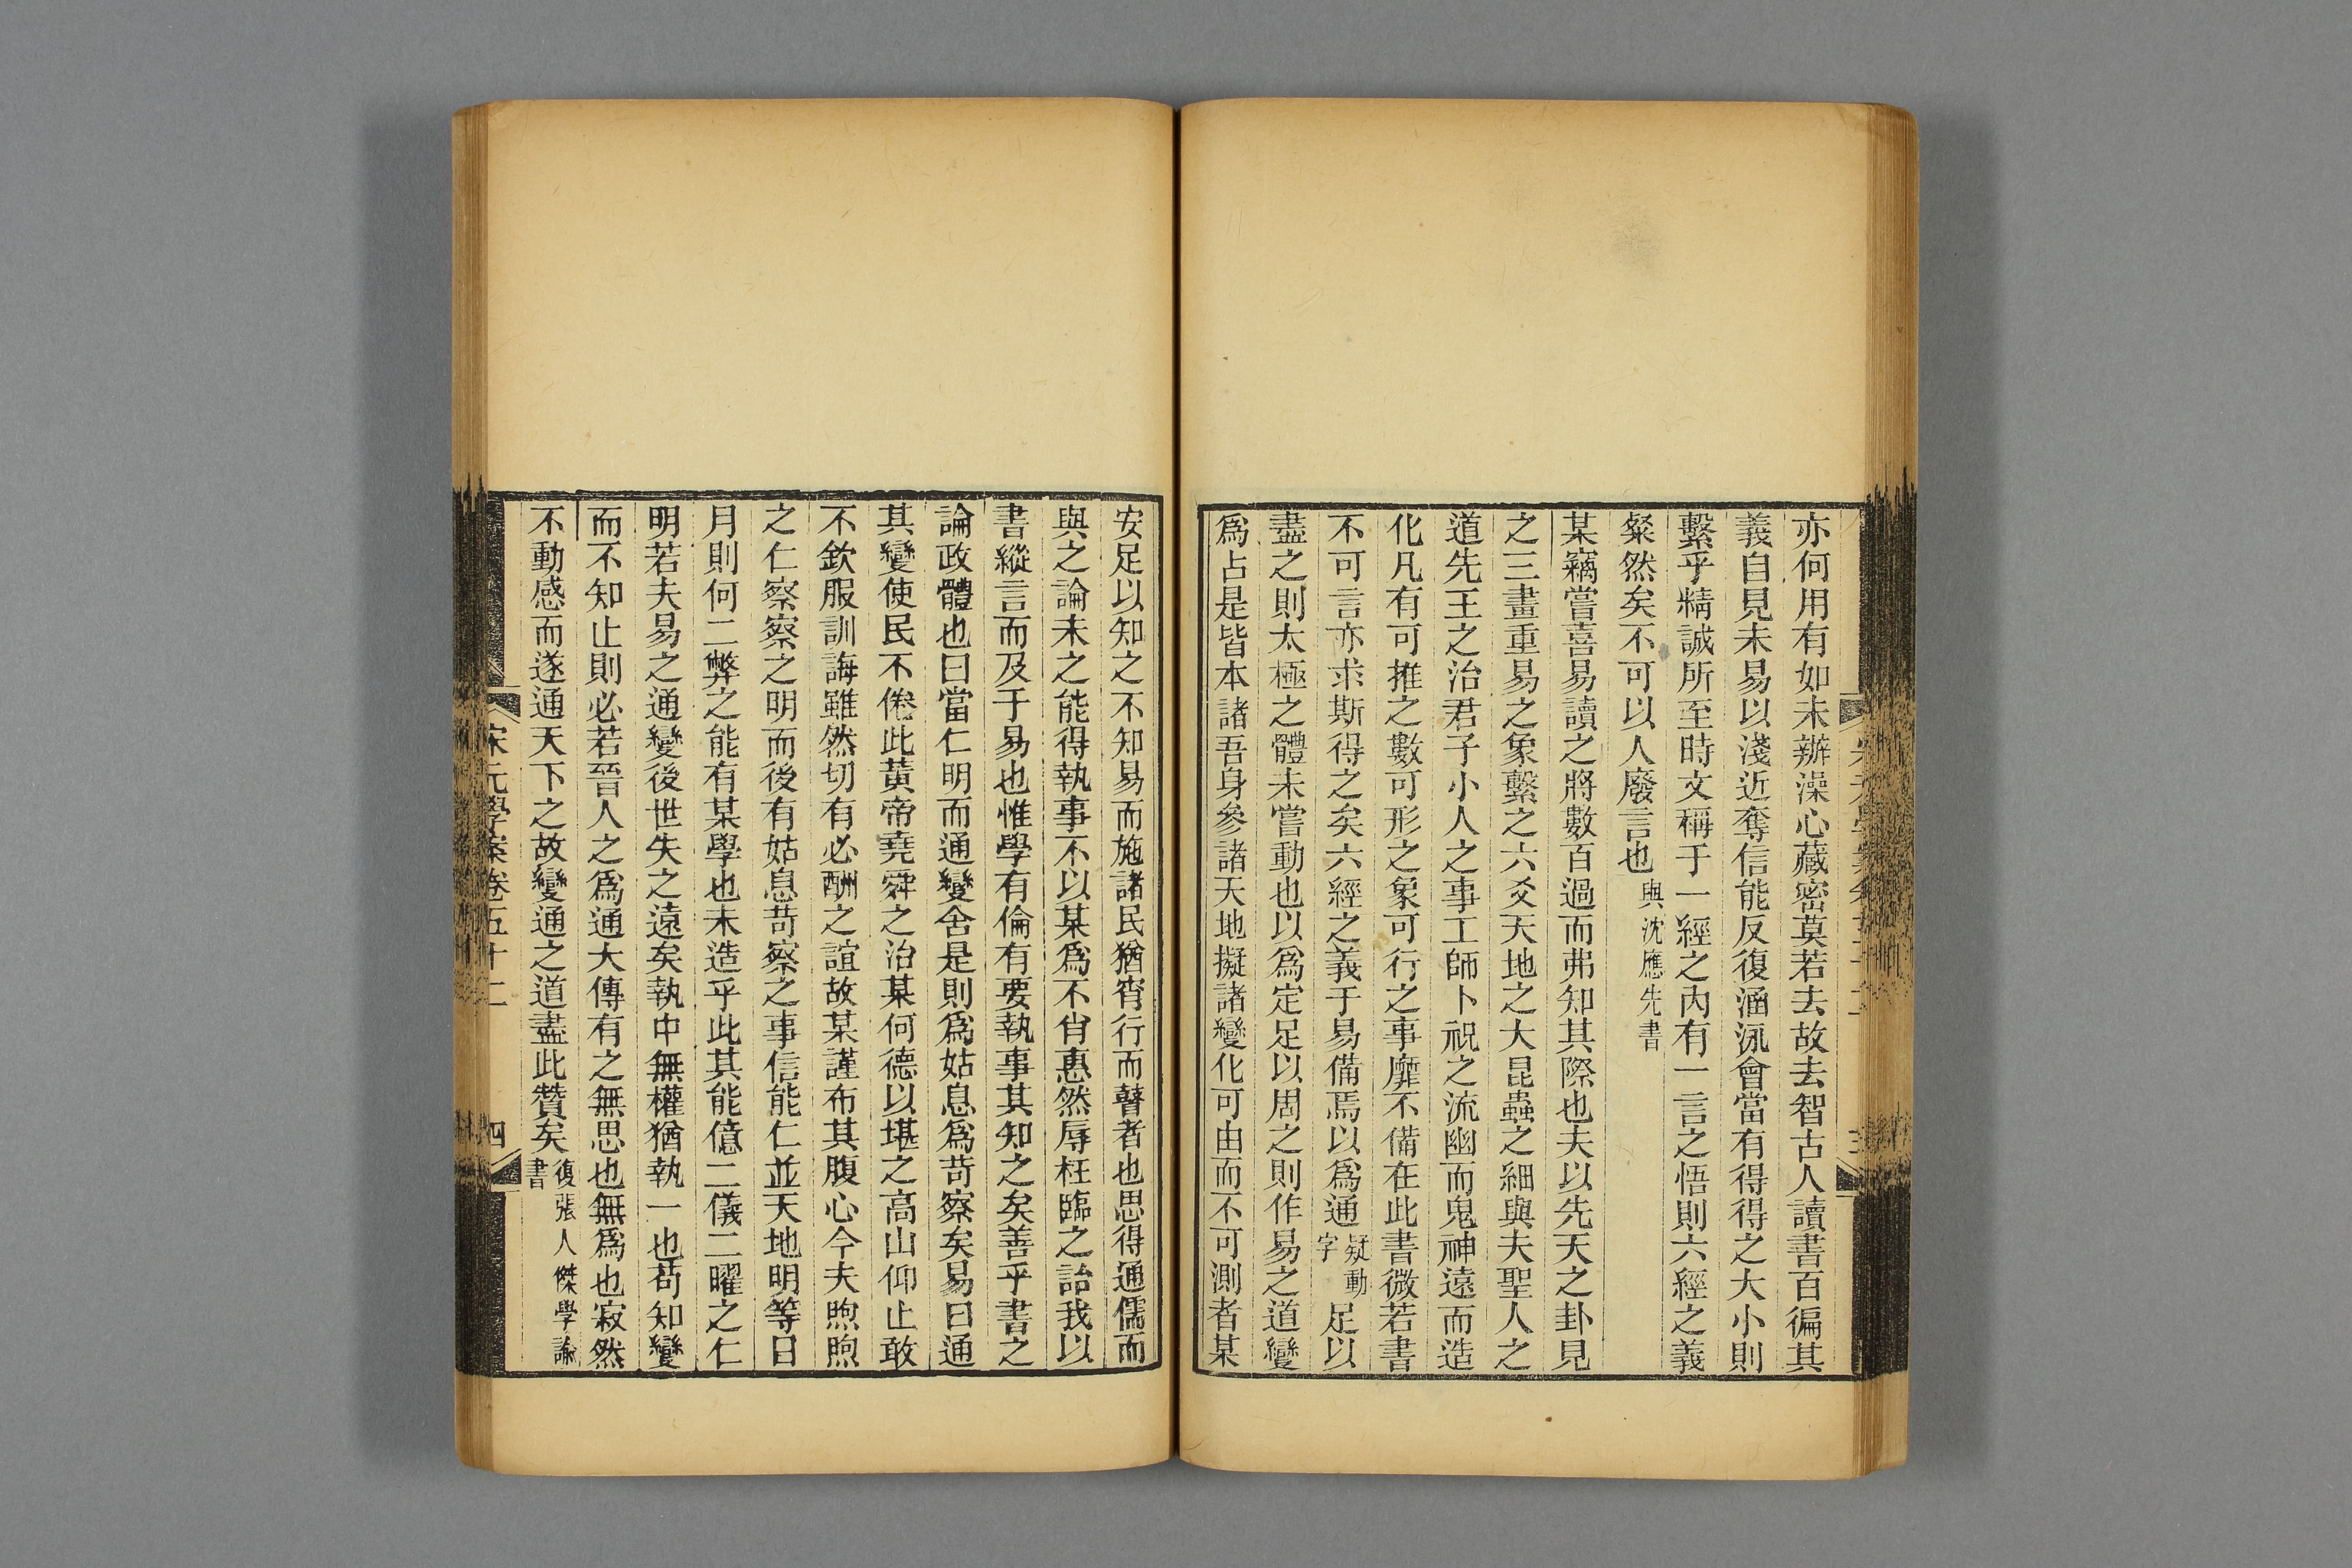 亦何用有如未辦澡心藏密莫若去故去智古人讀書百徧其
義自見未易以淺近奪信能反復涵泳會當有得得之大小則
繫乎精誠所至時文稱于一經之內有一言之悟則六經之義
粲然矣不可以人廢言也與沈應先書
某竊嘗喜易讀之將數百過而弗知其際也夫以先天之卦見
之三畫重易之象繫之六爻天地之大昆蟲之細與夫聖人之
道先王之治君子小人之事工師卜祝之流幽而鬼神遠而造
化凡有可推之數可形之象可行之事靡不備在此書微若書
不可言亦求斯得之矣六經之義于易備焉以爲通疑動字足以
盡之則太極之體未嘗動也以爲定足以周之則作易之道變
爲占是皆本諸吾身參諸天地擬諸變化可由而不可測者某
安足以知之不知易而施諸民猶宵行而瞽者也思得通儒而
與之論未之能得執事不以某爲不肖惠然辱枉臨之詒我以
書縱言而及于易也惟學有倫有要執事其知之矣善乎書之
論政體也曰當仁明而通變舍是則爲姑息爲苛察矣易曰通
其變使民不倦此黃帝堯舜之治某何德以堪之高山仰止敢
不欽服訓誨雖然切有必酬之誼故某謹布其腹心今夫煦煦
之仁察察之明而後有姑息苛察之事信能仁並天地明等日
月則何二弊之能有某學也未造乎此其能億二儀二曜之仁
明若夫易之通變後世失之遠矣執中無權猶執一也苟知變
而不知止則必若晉人之爲通大傳有之無思也無爲也寂然
不動感而遂通天下之故變通之道盡此贊矣復張人傑學諭書
宋元學案卷五十二
四